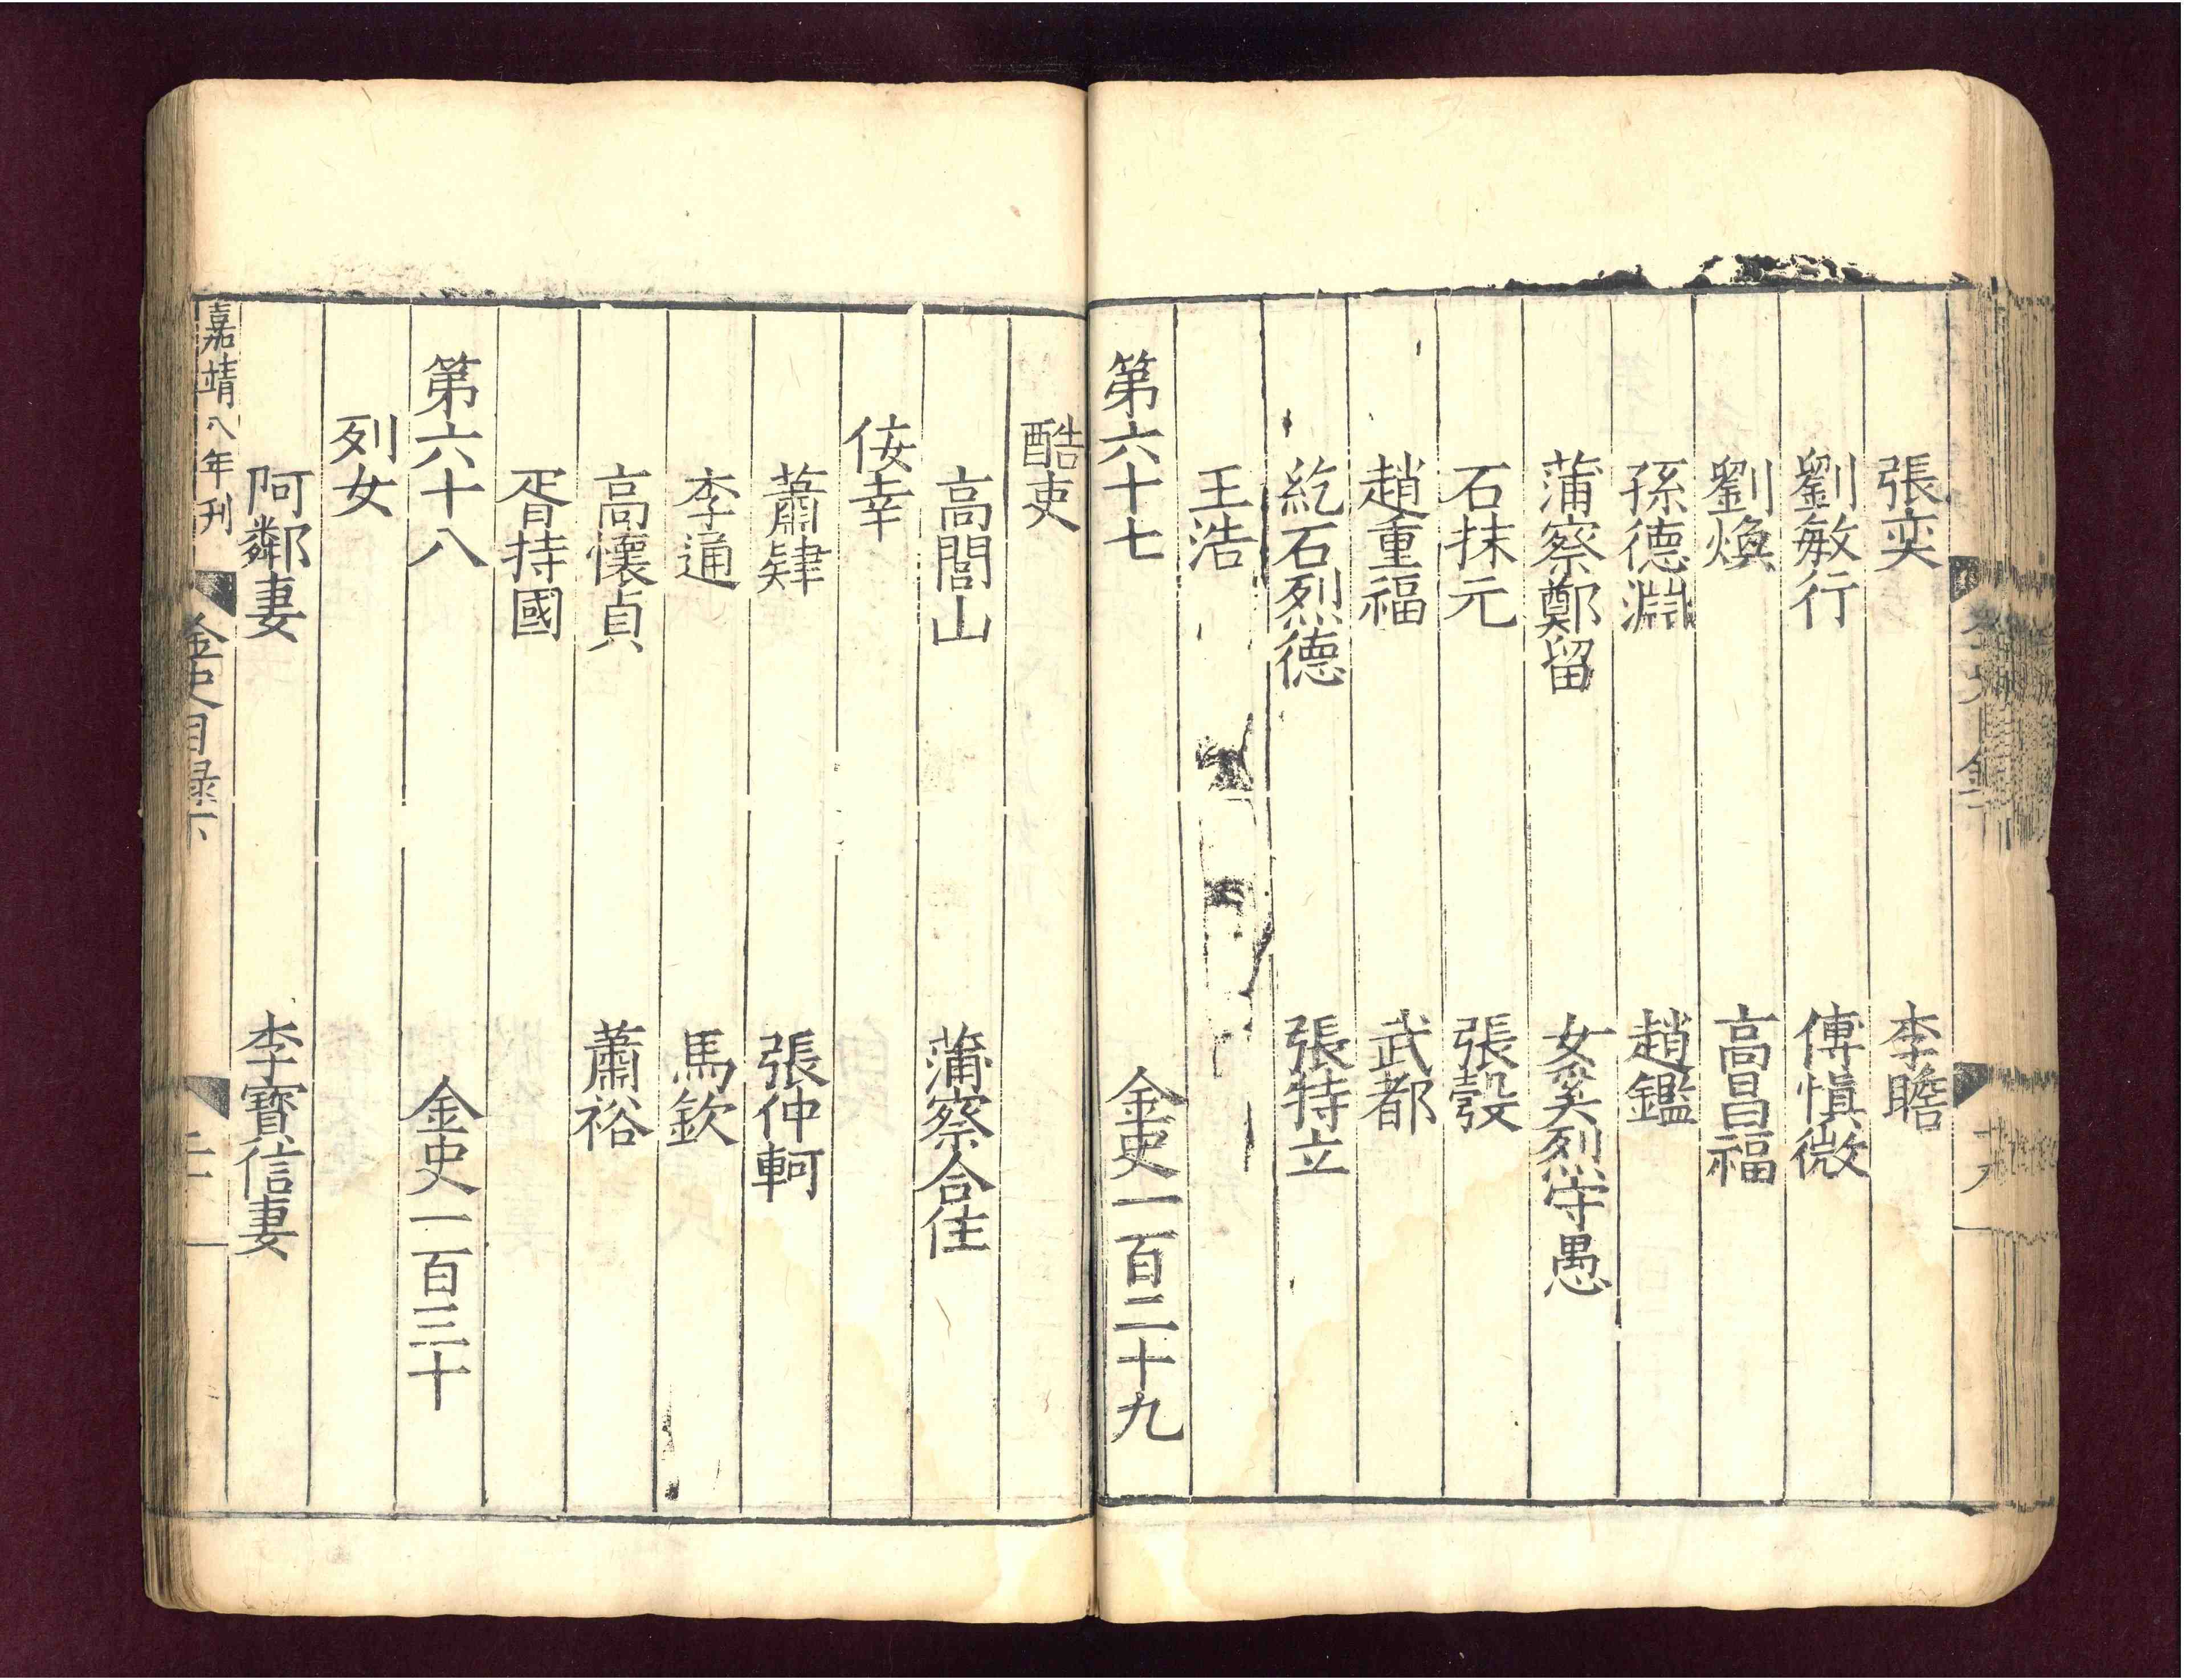 張奕 李瞻
劉敏行 傅慎微
劉煥 高昌福
孫德淵 趙鑑
蒲察鄭留 女奚烈守愚
石抹元 張彀
趙重福 武都
紇石烈德 張特立
王浩
第六十七 金史一百二十九
酷吏
高閭山 蒲察合住
佞幸
蕭肄 張仲軻
李通 馬欽
高懷貞 蕭裕
胥持國
第六十八 金史一百三十
列女
阿鄰妻 李寶信妻
嘉靖八年刊 金史目録下